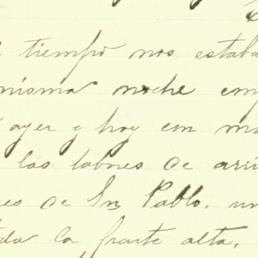 tiempo nos estaba
misma noche
ayer y hoy con
las labores de
es de Sn Pablo. un
da la parte alta.